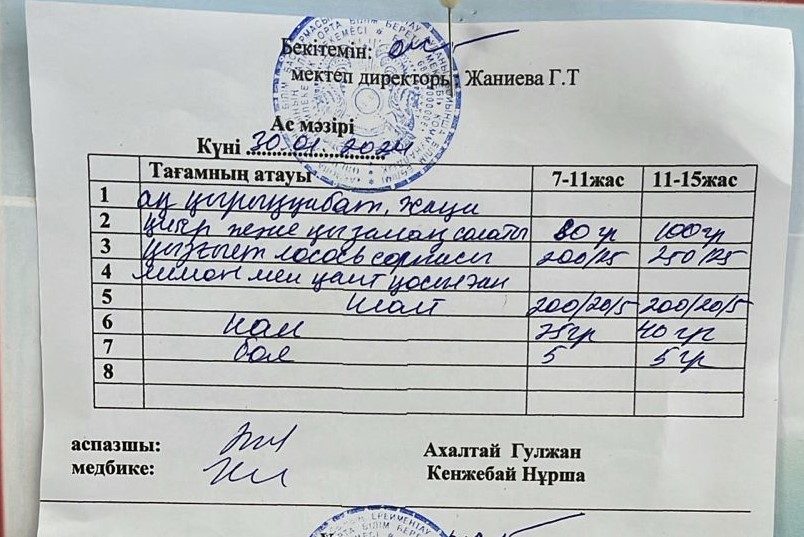 Бекітемін:
мектеп директоры Жаниева Г.Т
Ас мәзірі
Күні 30.01.2024
Тағамның атауы 7-11жас 11-15жас
1 ақ қырыққабат, жаңа
2 қияр және қызанақ салаты 80 гр 100гр
3 қызғылт лосось сорпасы 200/25 250/25
4 лимон мен қант қосылған
5 200/20/5 200/20/5
6 нан 25гр 40 гр
7 бал 5 5 гр
8
аспазшы: Ахалтай Гулжан
медбике: Кенжебай Нұрша